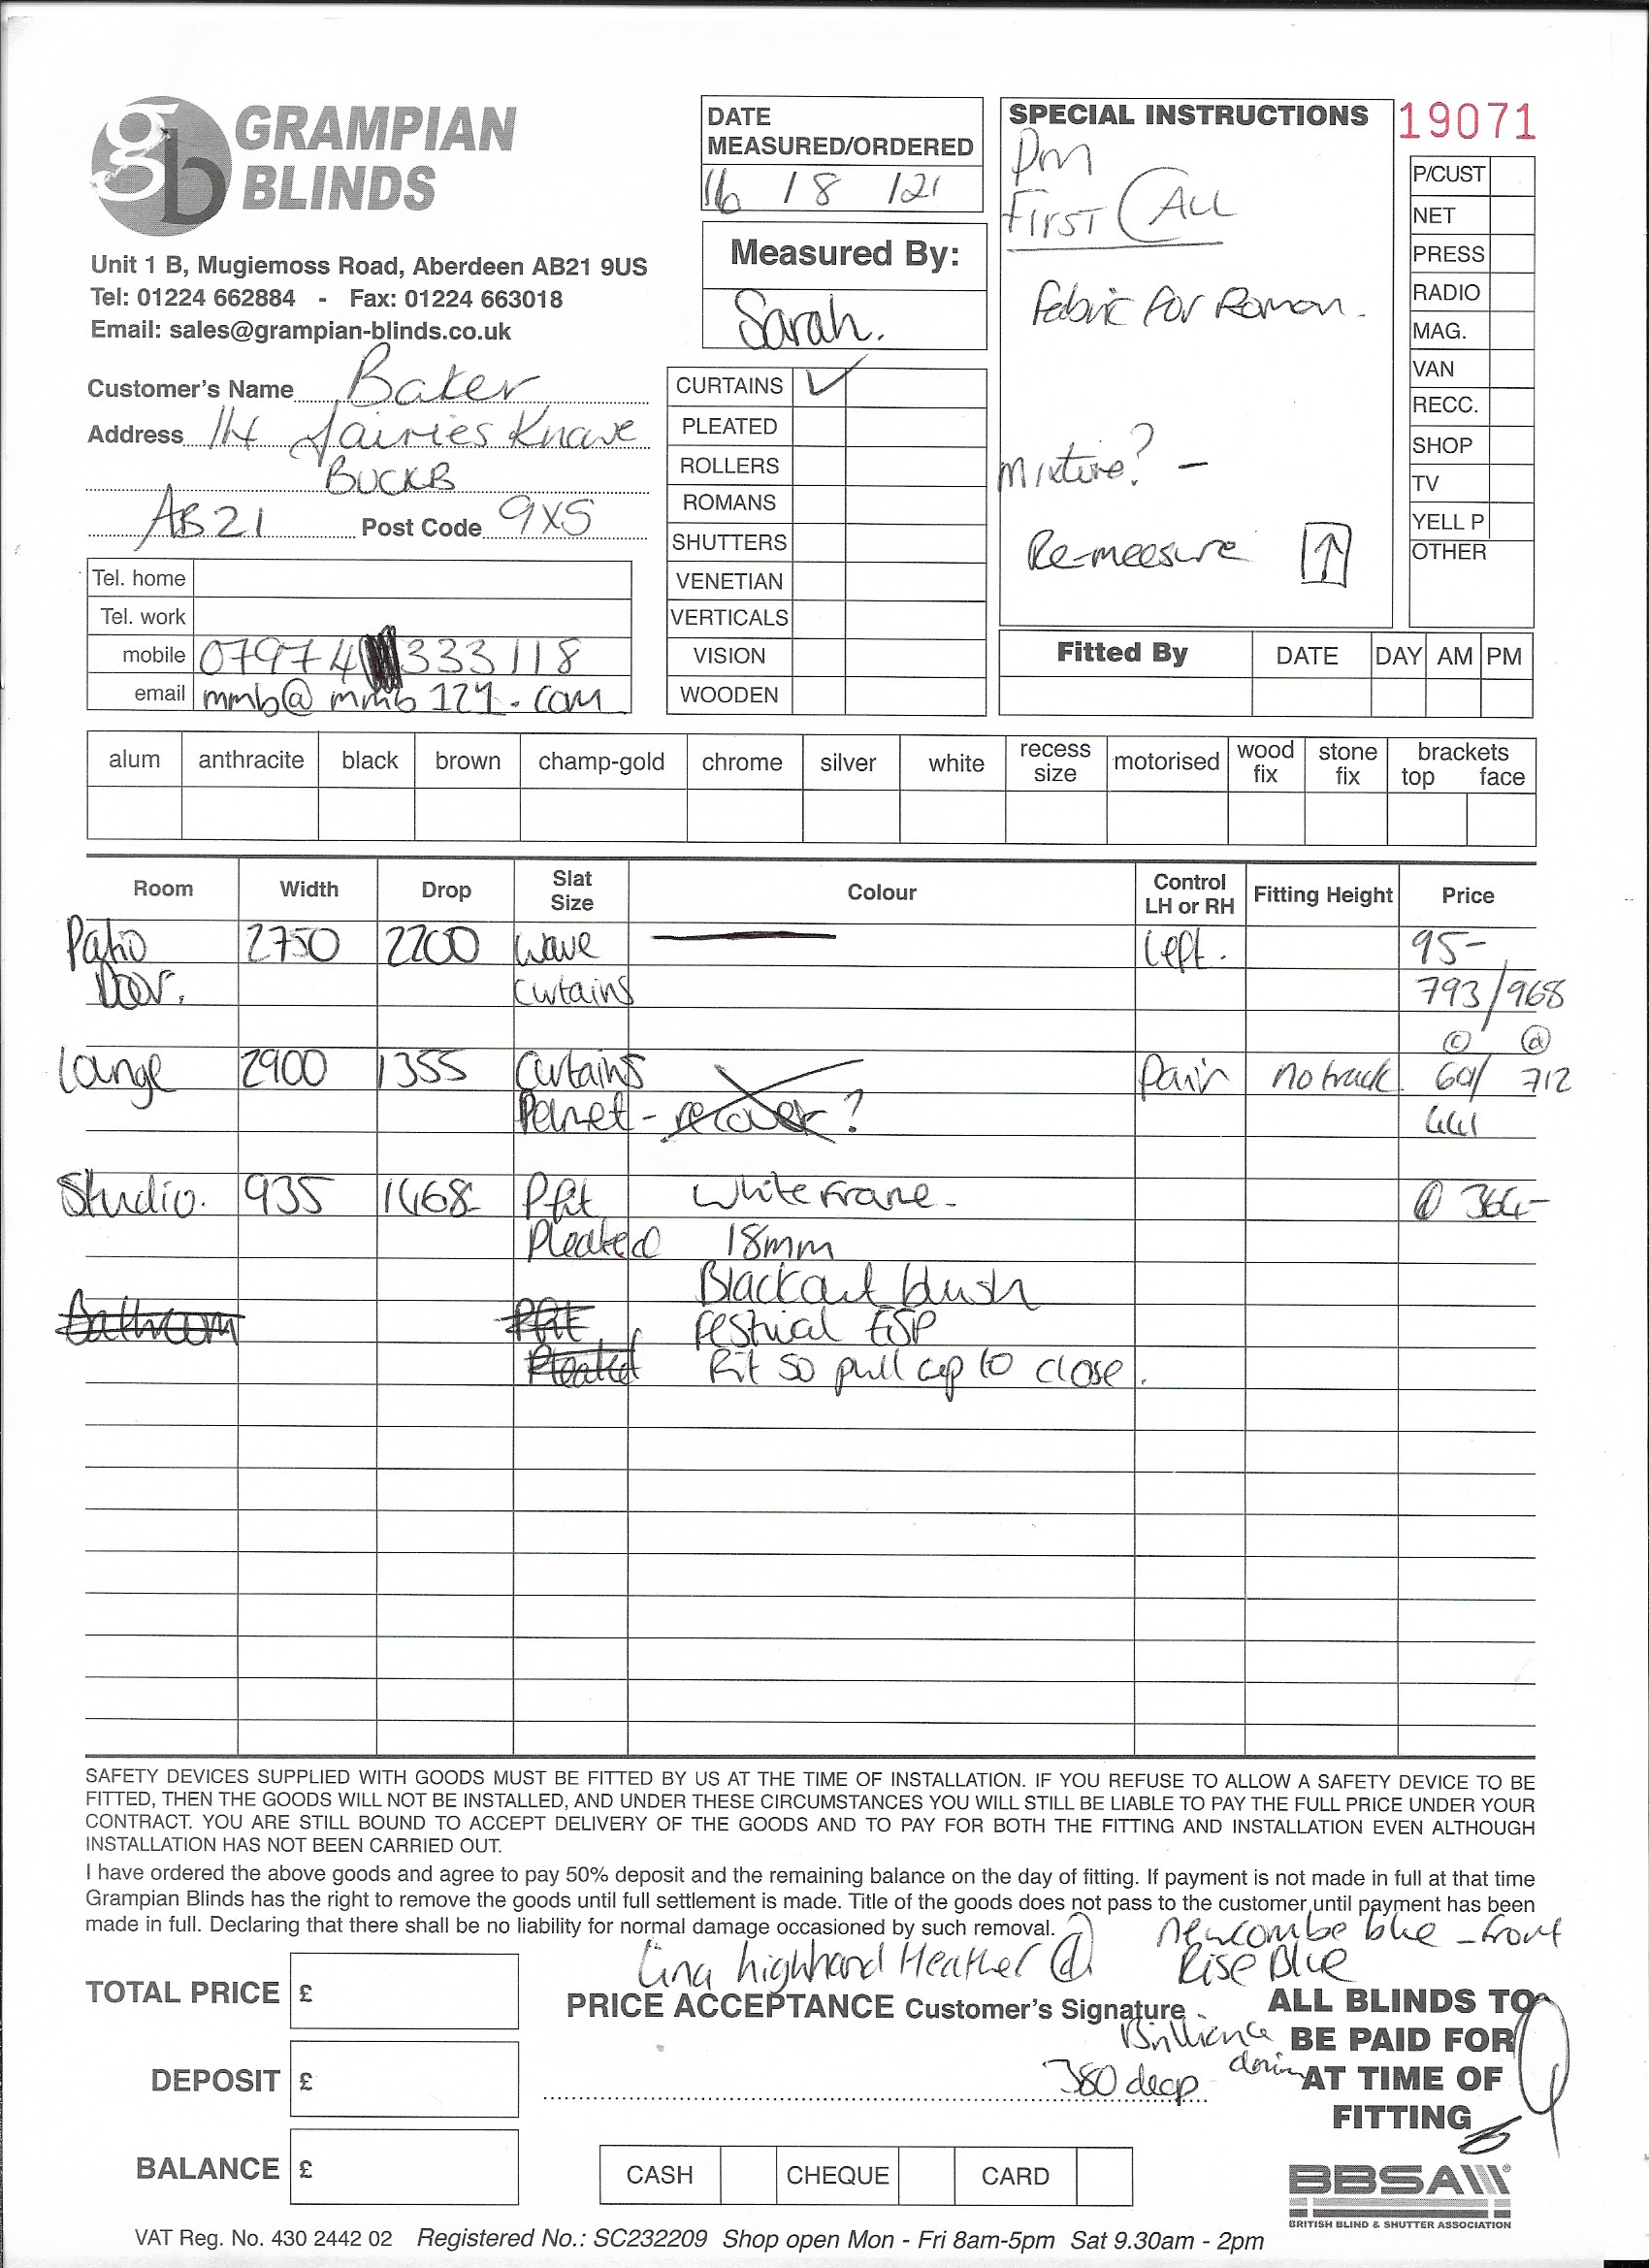 gb GRAMPIAN
BLINDS
Unit 1 B, Mugiemoss Road, Aberdeen AB21 9US
Tel: 01224 662884 - Fax: 01224 663018
Email: sales@grampian-blinds.co.uk
Customer's Name Baker
Address 14 Fairies Knowe
BUCKB
AB21 Post Code 9XS
Tel. home
Tel. work
mobile 07974 333118
email mmb@mmb124.com
DATE
MEASURED/ORDERED
16 / 8 /21
Measured By:
Sarah.
CURTAINS ✓
PLEATED
ROLLERS
ROMANS
SHUTTERS
VENETIAN
VERTICALS
VISION
WOODEN
SPECIAL INSTRUCTIONS
pm
First Call
Fabric For Roman.
mixture? -
Re-measure ↑
19071
P/CUST
NET
PRESS
RADIO
MAG.
VAN
RECC.
SHOP
TV
YELL P
OTHER
Fitted By DATE DAY AM PM
alum anthracite black brown champ-gold chrome silver white recess size motorised wood fix stone fix brackets top face
Room Width Drop Slat Size Colour Control LH or RH Fitting Height Price
Patio 2750 2200 Wave Left. 95-
Door. Curtains 793/968
(c) (d)
Lounge 2900 1355 Curtains Pair no track 601/ 712
Pelmet - recover? 441
Studio. 935 1468 Pfit White Frame - 364-
Pleated 18mm
Blackout blush
Bathroom Pfit Festival ESP
Pleated Fit so pull up to close.
SAFETY DEVICES SUPPLIED WITH GOODS MUST BE FITTED BY US AT THE TIME OF INSTALLATION. IF YOU REFUSE TO ALLOW A SAFETY DEVICE TO BE
FITTED, THEN THE GOODS WILL NOT BE INSTALLED, AND UNDER THESE CIRCUMSTANCES YOU WILL STILL BE LIABLE TO PAY THE FULL PRICE UNDER YOUR
CONTRACT. YOU ARE STILL BOUND TO ACCEPT DELIVERY OF THE GOODS AND TO PAY FOR BOTH THE FITTING AND INSTALLATION EVEN ALTHOUGH
INSTALLATION HAS NOT BEEN CARRIED OUT.
I have ordered the above goods and agree to pay 50% deposit and the remaining balance on the day of fitting. If payment is not made in full at that time
Grampian Blinds has the right to remove the goods until full settlement is made. Title of the goods does not pass to the customer until payment has been
made in full. Declaring that there shall be no liability for normal damage occasioned by such removal.
newcombe blue - front
Lina highland Heather (d) Rise Blue
TOTAL PRICE £
PRICE ACCEPTANCE Customer's Signature
Brilliance
380 deep
ALL BLINDS TO
BE PAID FOR
AT TIME OF
FITTING
DEPOSIT £
BALANCE £
CASH CHEQUE CARD
BBSA
BRITISH BLIND & SHUTTER ASSOCIATION
VAT Reg. No. 430 2442 02 Registered No.: SC232209 Shop open Mon - Fri 8am-5pm Sat 9.30am - 2pm